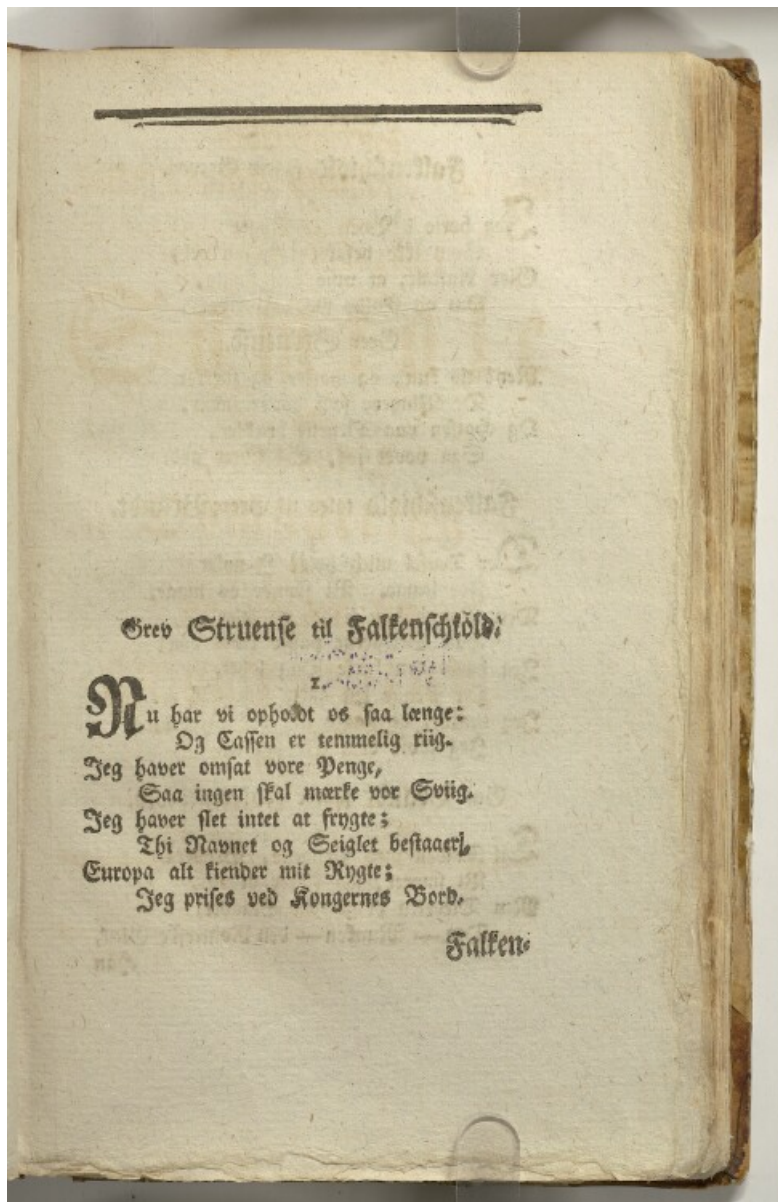 Grev Struense til Falkenschiöld.
1.
Nu har vi opholdt os saa længe:
Og Cassen er temmelig riig.
Jeg haver omsat vore Penge,
Saa ingen skal mærke vor Sviig.
Jeg haver slet intet at frygte;
Thi Navnet og Seiglet bestaaer,
Europa alt kiender mit Rygte;
Jeg prises ved Kongernes Bord.
Falken-